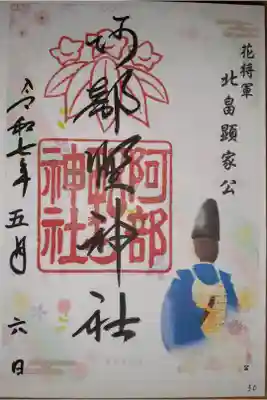 花将軍
北畠顕家公
阿部野神社
阿部野神社
令和七年五月六日